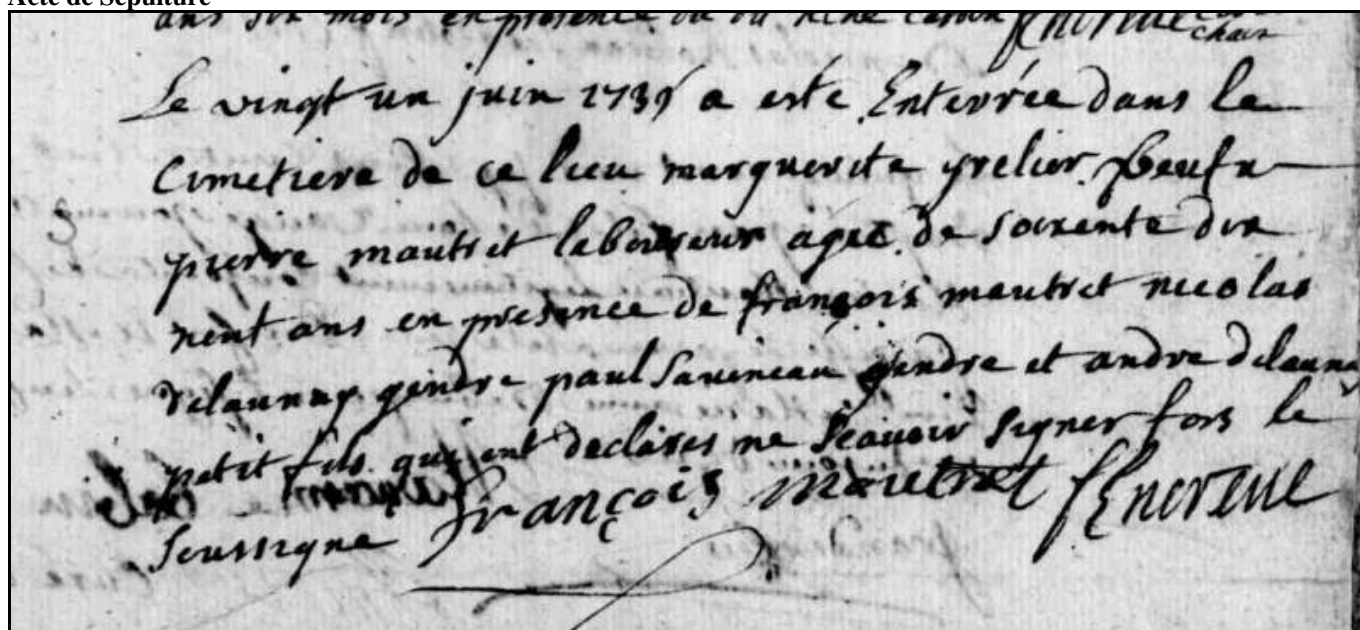 Acte de Sépulture
ans six mois en presence du du René
chan
Le vingt un juin 1739 a este Enterrée dans le
Cimetiere de ce lieu marguerite grelier veufve
pierre mautret laboureur agée de soixente dix
neuf ans en presence de françois mautret nicolas
delaunay gendre paul savineau gendre et andre delaunay
petit fils qui ont declares ne scavoir signer fors le
soussigne françois mautret